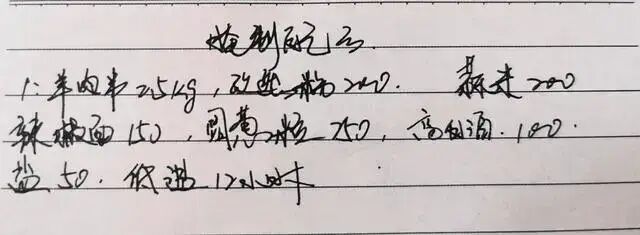 腌制配方
1. 羊肉串 2.5kg，孜然粉200. 蒜末200
辣椒面150，圆葱粒250，高白酒.100.
盐50. 低温12小时